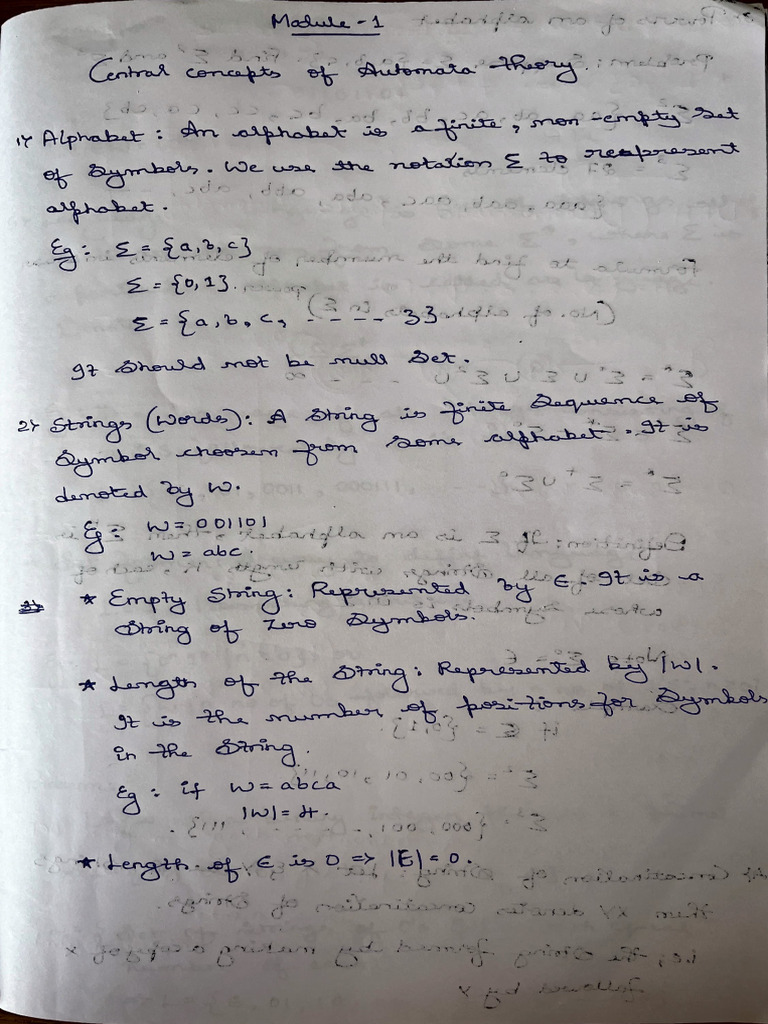 Module - 1
Central concepts of Automata Theory.
1) Alphabet : An alphabet is a finite, non-empty set
of symbols. We use the notation Σ to reapresent
alphabet.
Eg : Σ = {a, b, c}
Σ = {0, 1}.
Σ = {a, b, c, - - - - z}
It should not be null set.
2) Strings (words) : A string is finite sequence of
symbol choosen from some alphabet. It is
denoted by w.
Eg : w = 001101
w = abc.
* Empty String : Represented by ϵ. It is a
string of zero symbols.
* Length of the string : Represented by |w|.
It is the number of positions for symbols
in the string.
Eg : if w = abca
|w| = 4.
* Length of ϵ is 0 => |ϵ| = 0.